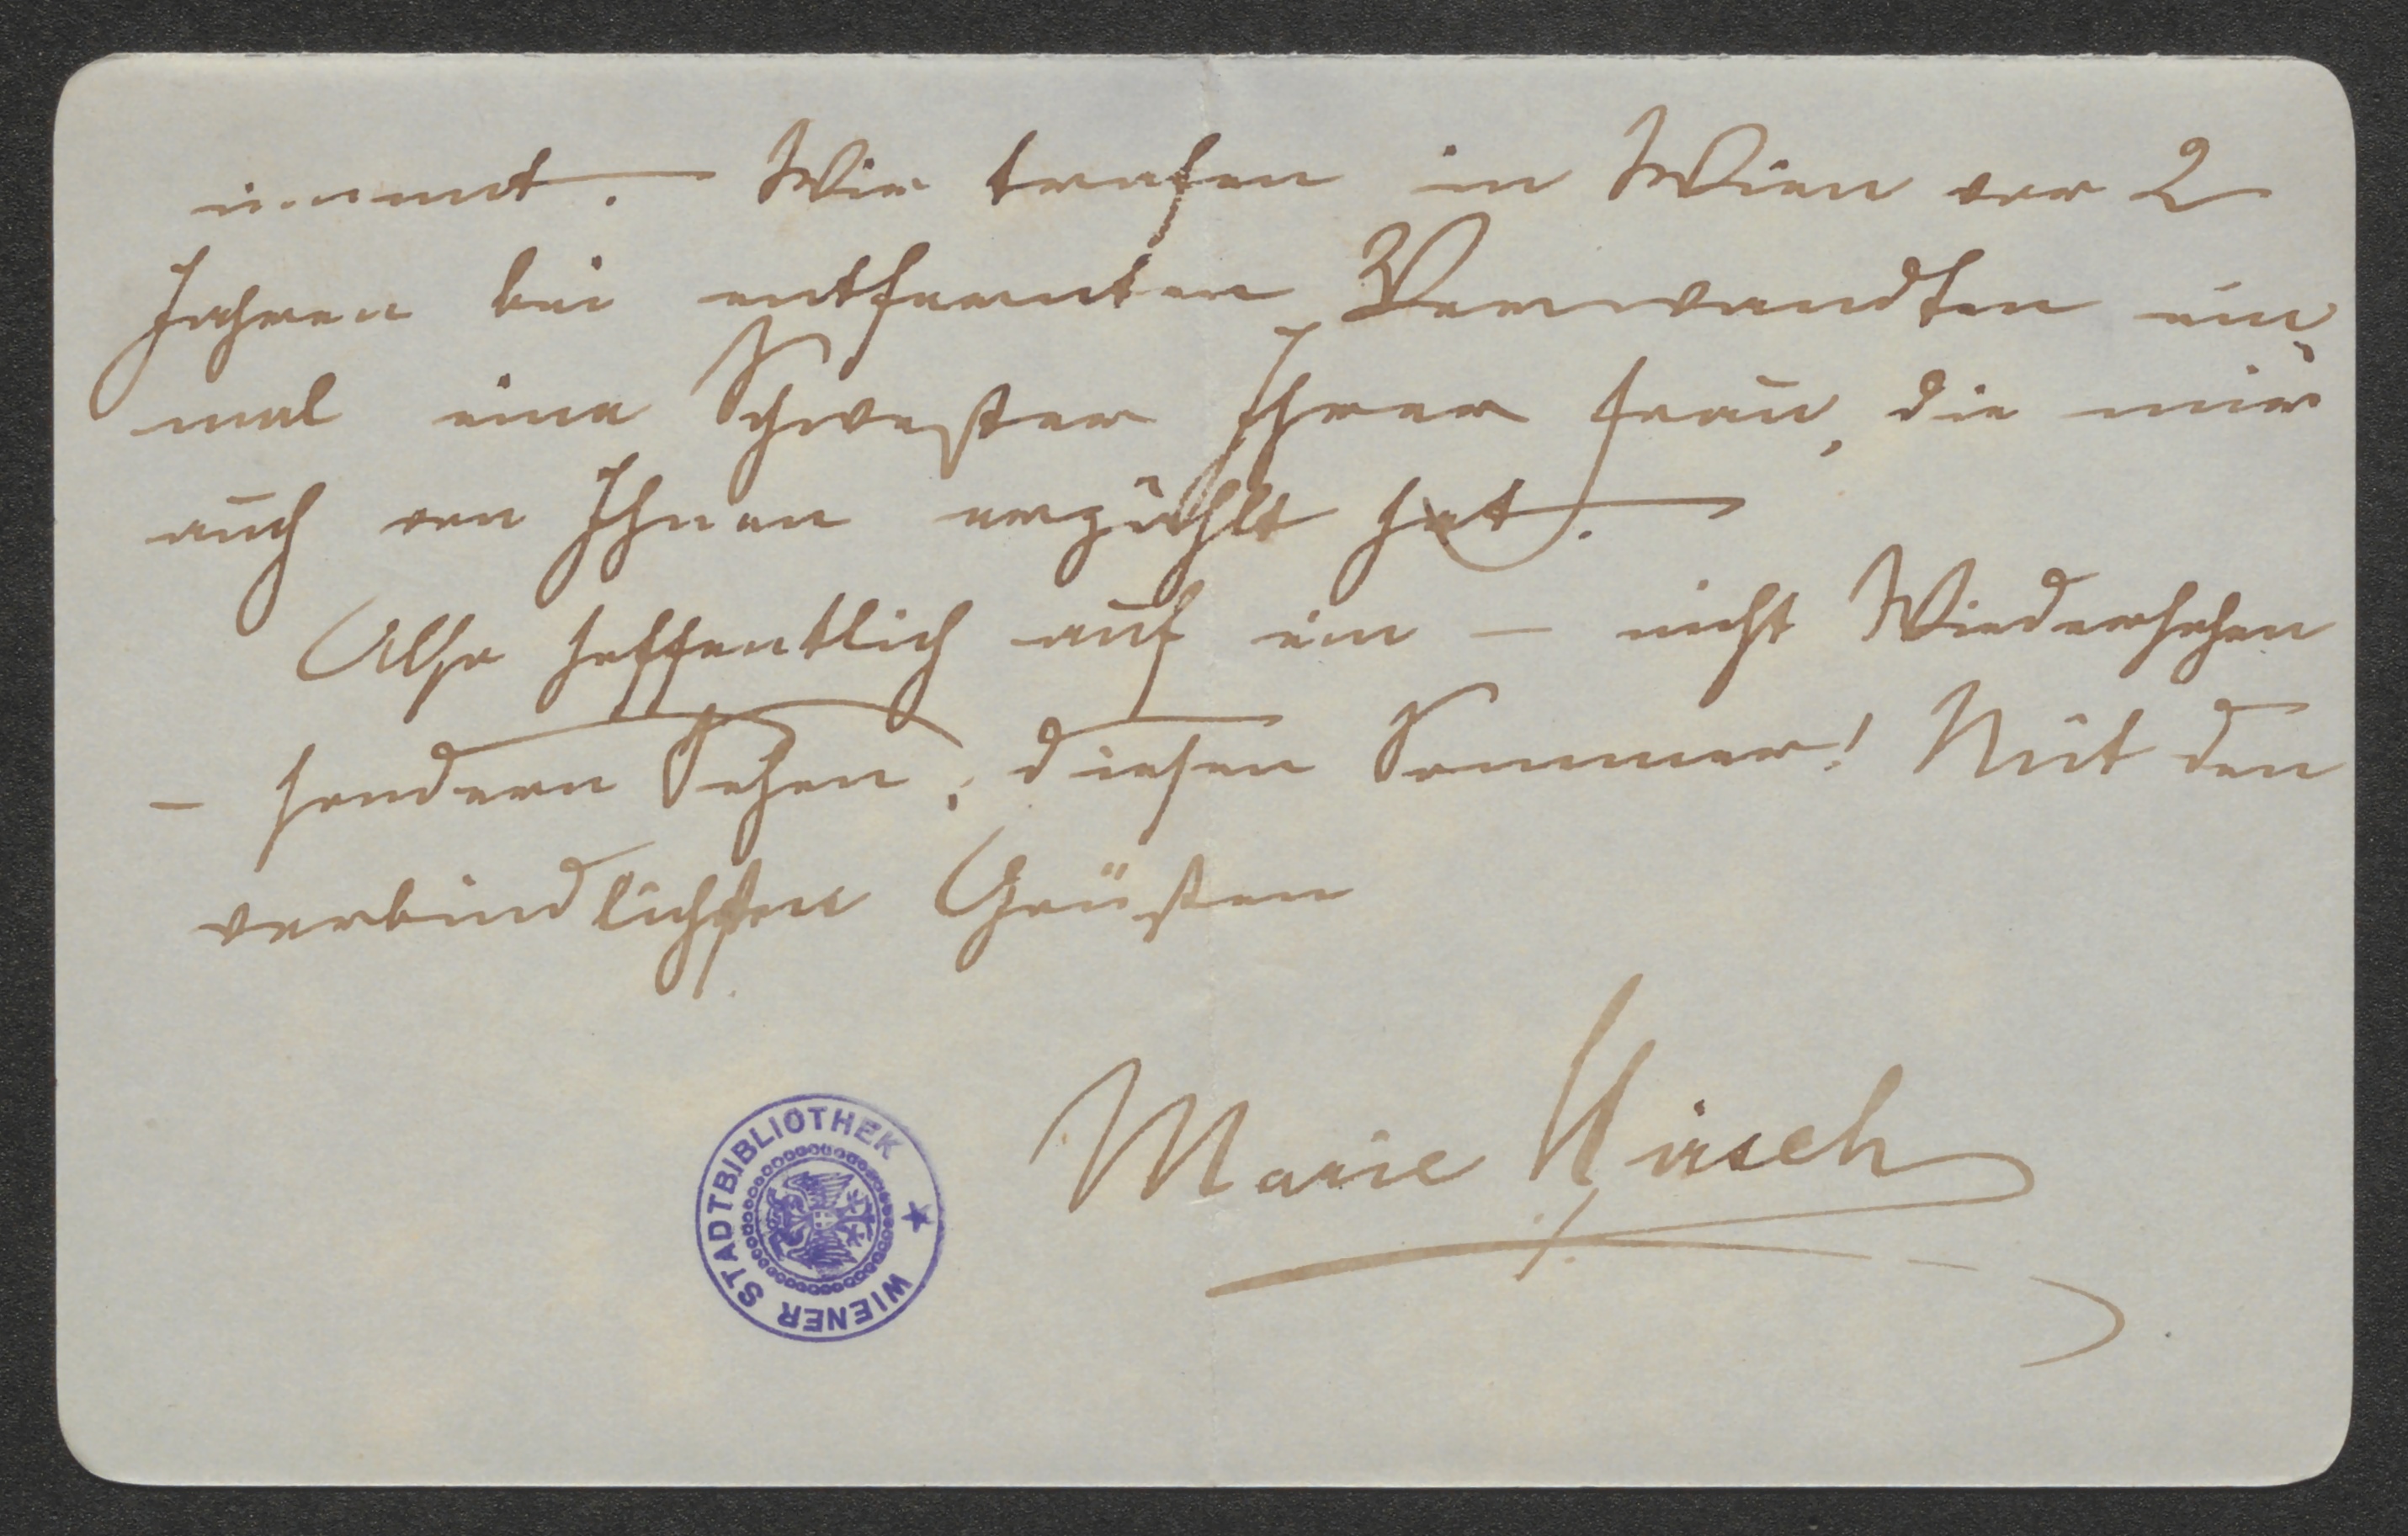 nimmt. Wir trafen in Wien vor 2
Jahren bei entfernten Verwandten ein-
mal eine Schwester Ihrer Frau, die mir
auch von Ihnen erzählt hat.
Also hoffentlich auf ein — nicht Wiedersehen
— sondern Sehen, diesen Sommer! Mit den
verbindlichsten Grüßen
Marie Hirsch
WIENER STADTBIBLIOTHEK